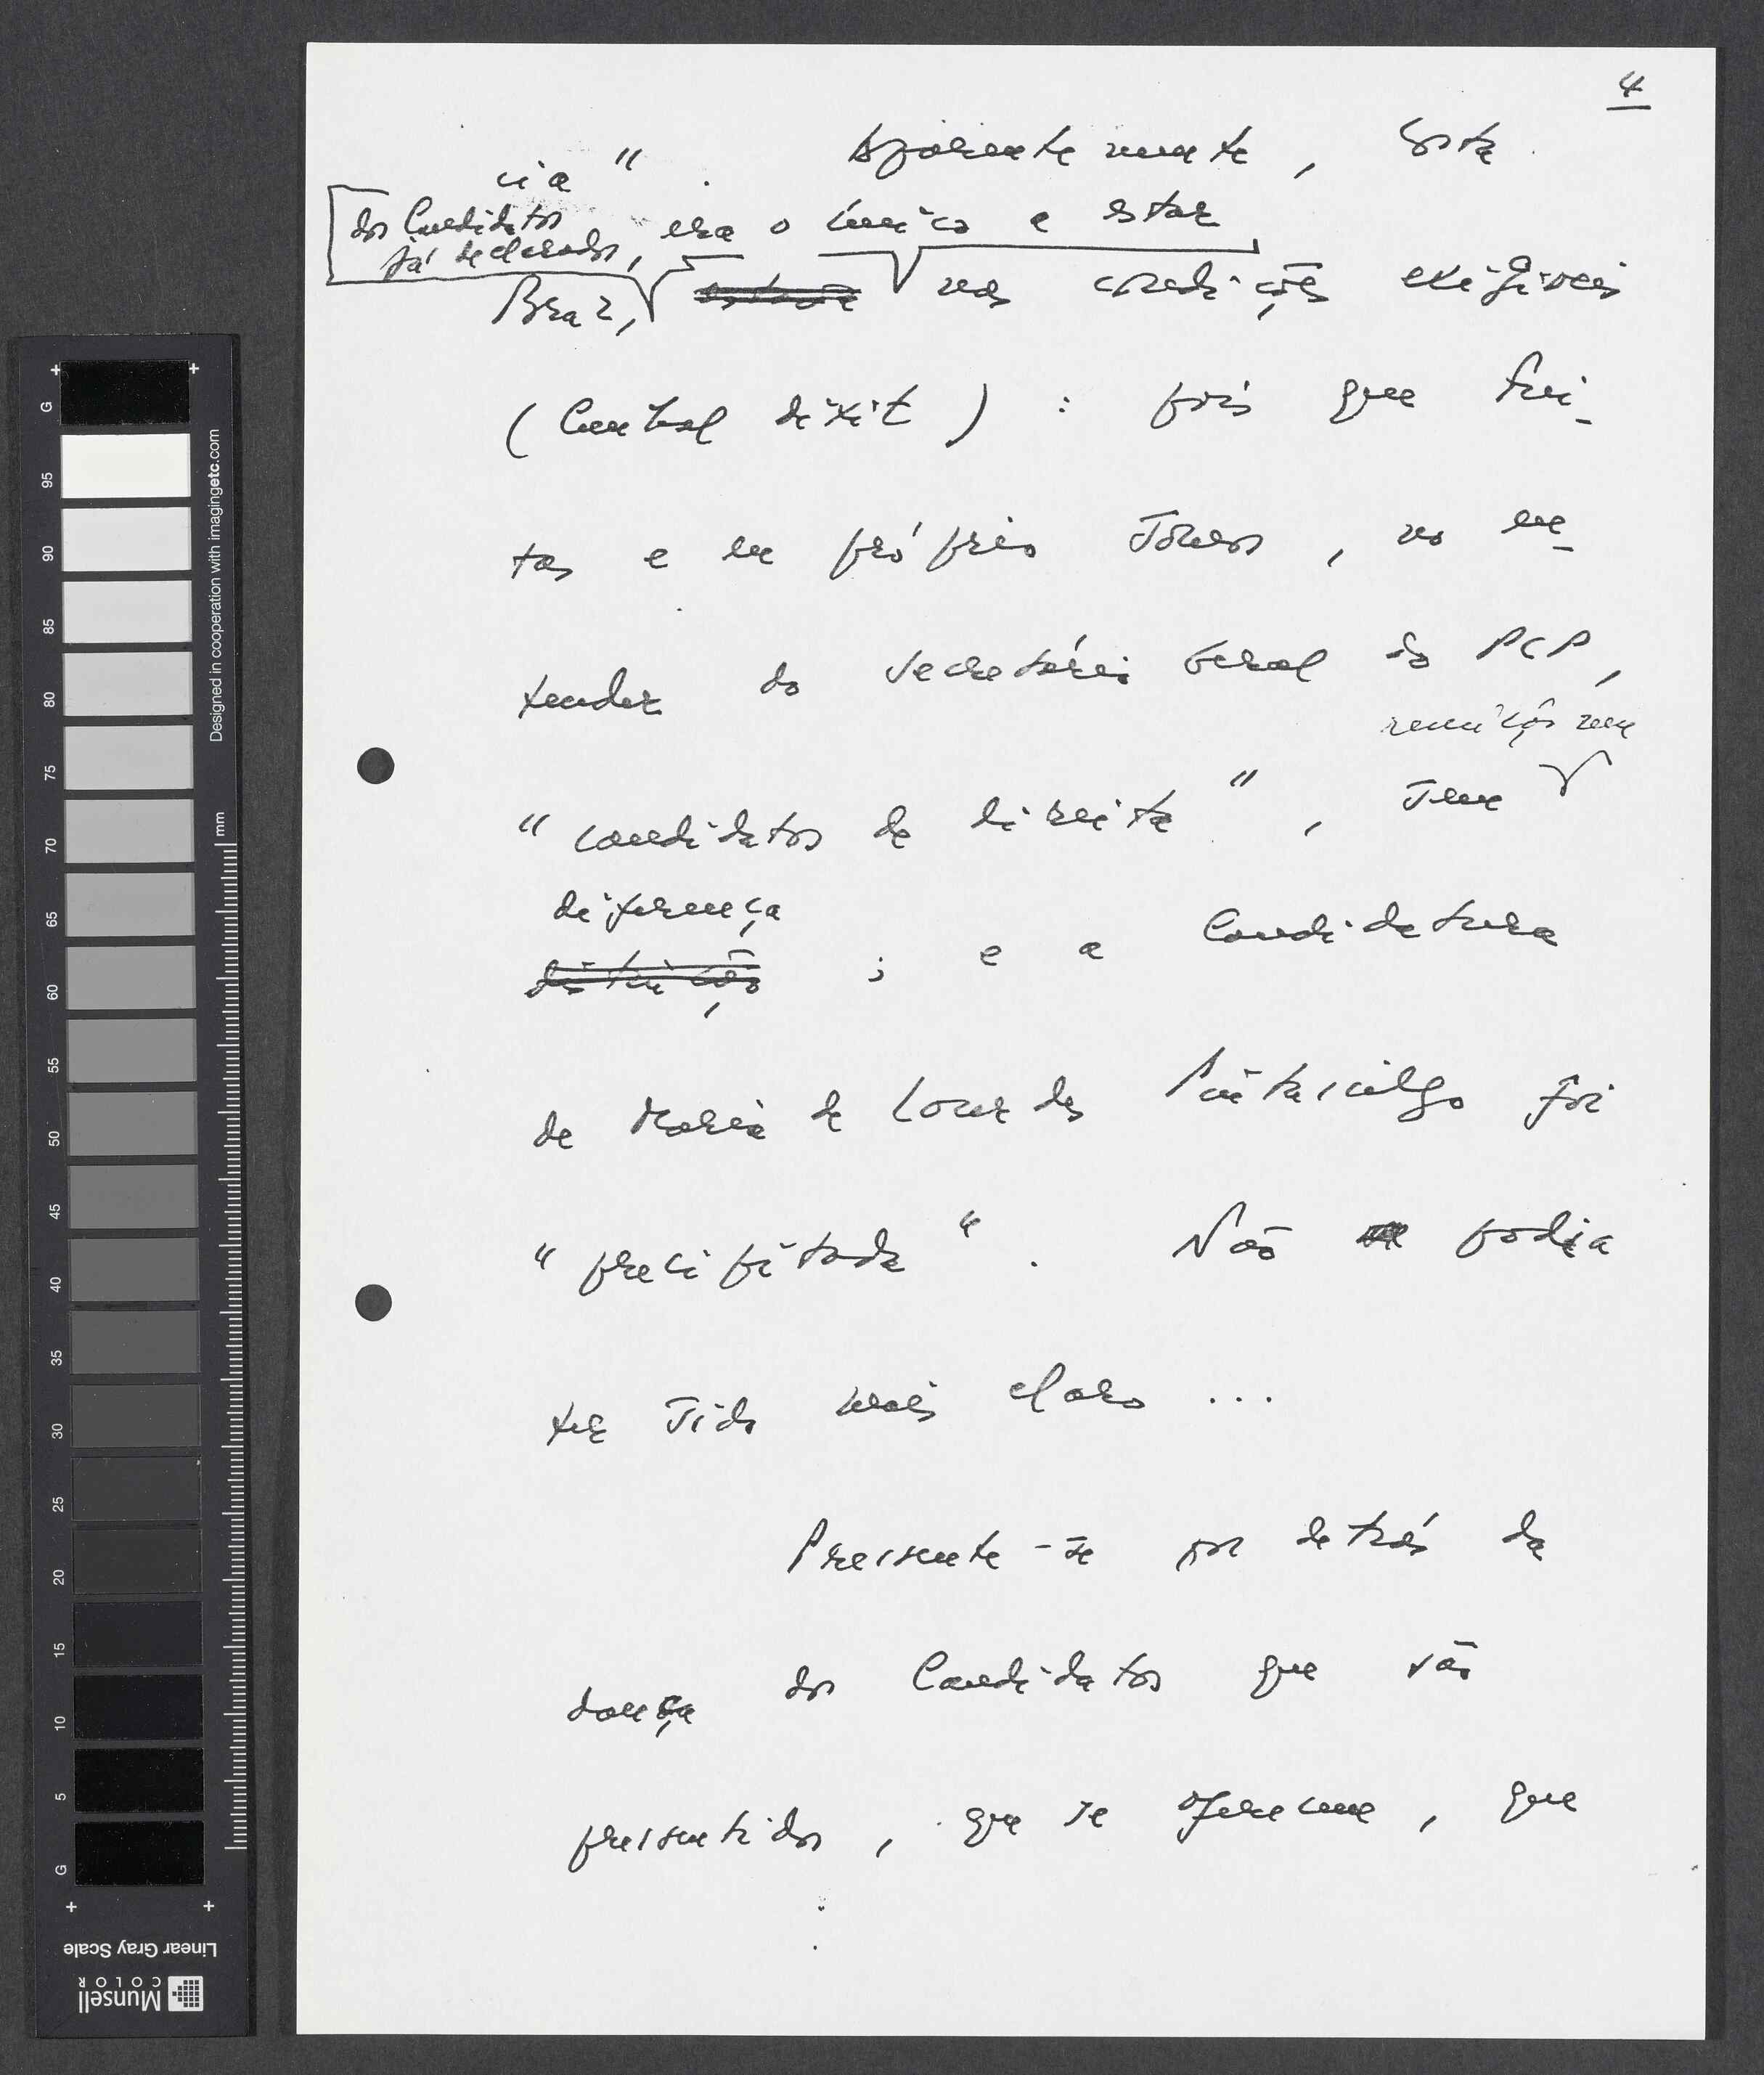 4
cia". Aparentemente, Costa
dos Candidatos
já declarados, era o único a estar
Braz, estava nas condições exigíveis
(Cunhal dixit): pois que Frei-
tas e eu próprio somos, no en-
tender do Secretário Geral do PCP,
remissão nem
"candidatos de direita", sem
diferença
distinção ; e a Candidatura
de Maria de Lourdes Pintasilgo foi
"precipitada". Não podia
ter sido mais claro ...
Pressente-se por detrás da
dança dos Candidatos que são
pressentidos, que se oferecem, que
G 95 90 85 80 75 70 65 60 55 50 45 40 35 30 25 20 15 10 5 G
Designed in cooperation with imagingetc.com
mm
Linear Gray Scale
Munsell
COLOR